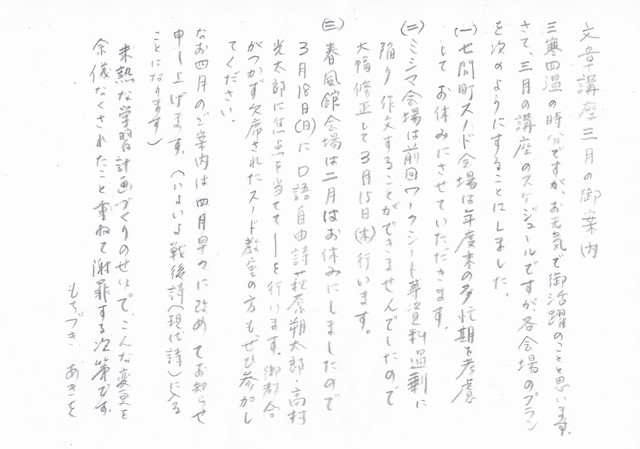 文章講座三月の御案内
三寒四温の時分ですが、お元気で御活躍のことと思います。
さて、三月の講座のスケジュールですが、各会場のプラン
を次のようにすることにしました。
(一)七間町スノード会場は年度末の多忙期を考慮
してお休みにさせていただきます。
(二)ミシマ会場は前回ワークシート等資料過剰に
陥り作文することができませんでしたので
大幅修正して3月15日(木)行います。
(三)春風館会場は二月はお休みにしましたので
3月18日(日)に口語自由詩萩原朔太郎・高村
光太郎に焦点を当てて行います。御都合
がつかず欠席されたスノード教室の方もぜひ参加し
てください。
なお四月のご案内は四月早々に改めてお知らせ
申し上げます。(いよいよ戦後詩(現代詩)に入る
ことになります)
未熟な学習計画づくりのせいで、こんな変更を
余儀なくされたこと重ねて謝罪する次第です。
もちづき あきを